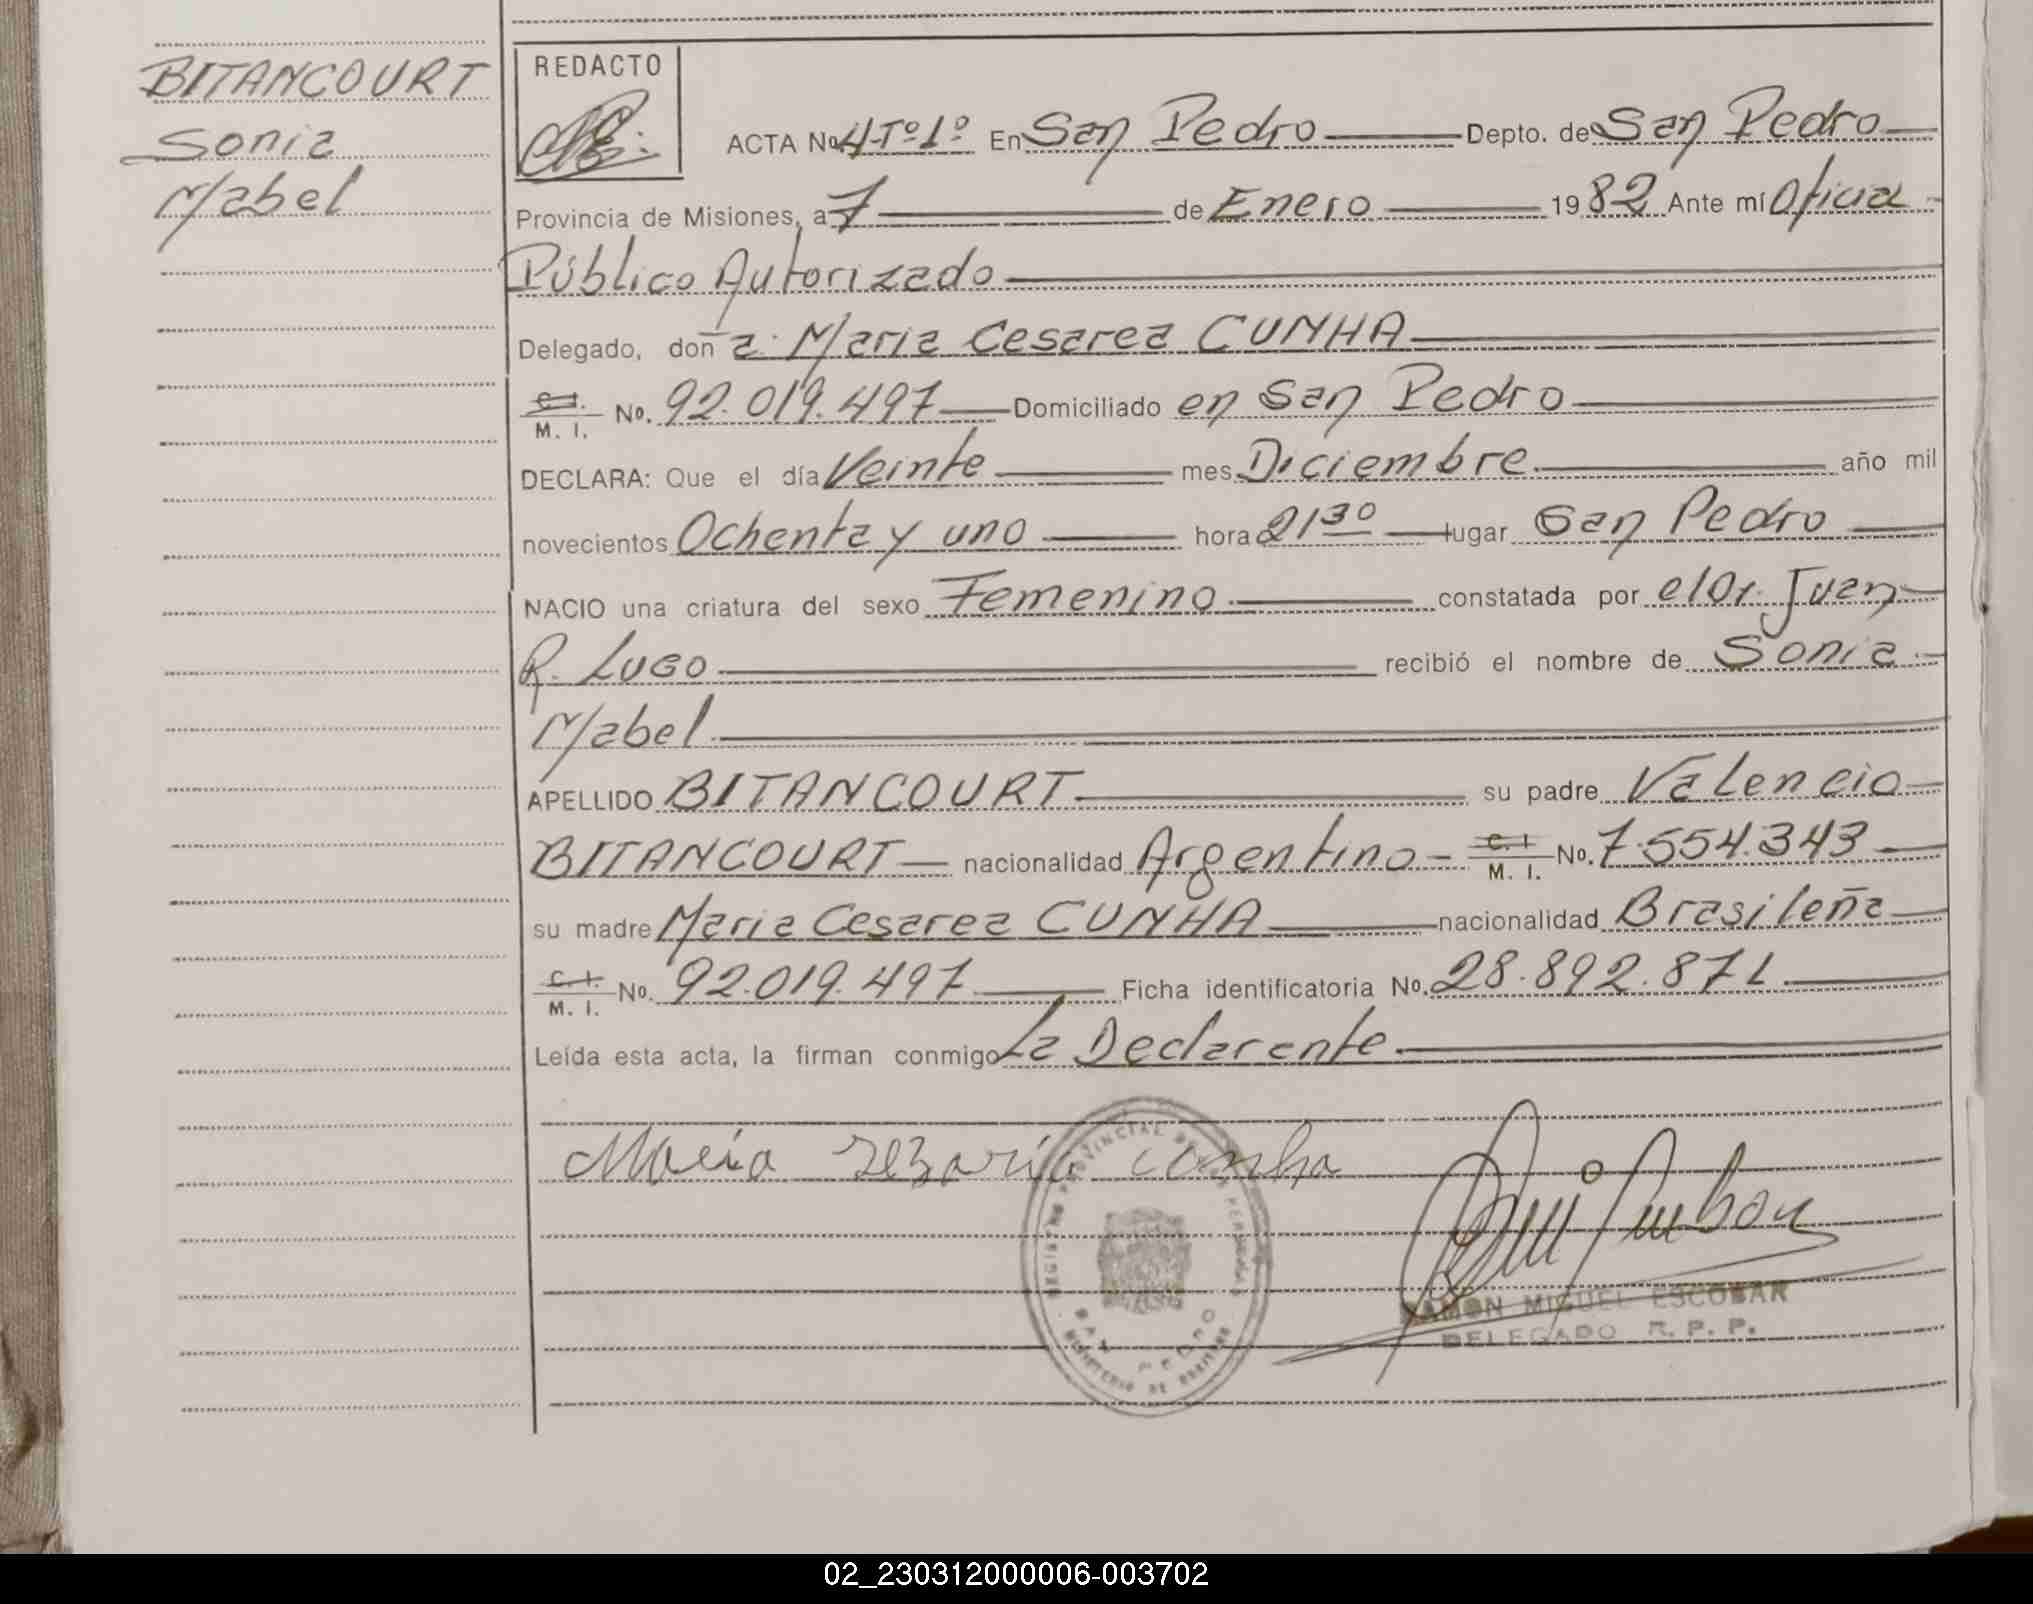 BITANCOURT
Sonia
Mabel
REDACTO
ACTA No. 4-Tº1º En San Pedro Depto. de San Pedro
Provincia de Misiones, a 7 de Enero 1982 Ante mí Oficial
Público Autorizado
Delegado, doña María Cesarea CUNHA
C. I.
M. I. No. 92.019.497 Domiciliado en San Pedro
DECLARA: Que el día Veinte mes Diciembre año mil
novecientos Ochenta y uno hora 21 30 lugar San Pedro
NACIO una criatura del sexo Femenino constatada por el Dr. Juan
R. LUGO recibió el nombre de Sonia
Mabel
APELLIDO BITANCOURT su padre Valencio
BITANCOURT nacionalidad Argentino C. I. M. I. No. 7.554.343
su madre Maria Cesarea CUNHA nacionalidad Brasileña
C. I.
M. I. No. 92.019.497 Ficha identificatoria No. 28.892.871
Leída esta acta, la firman conmigo La Declarente
Maria cunha
REGISTRO PROVINCIAL DE LAS PERSONAS
SAN PEDRO
MINISTERIO DE
RAMON MIGUEL ESCOBAR
DELEGADO R. P. P.
02_230312000006-003702